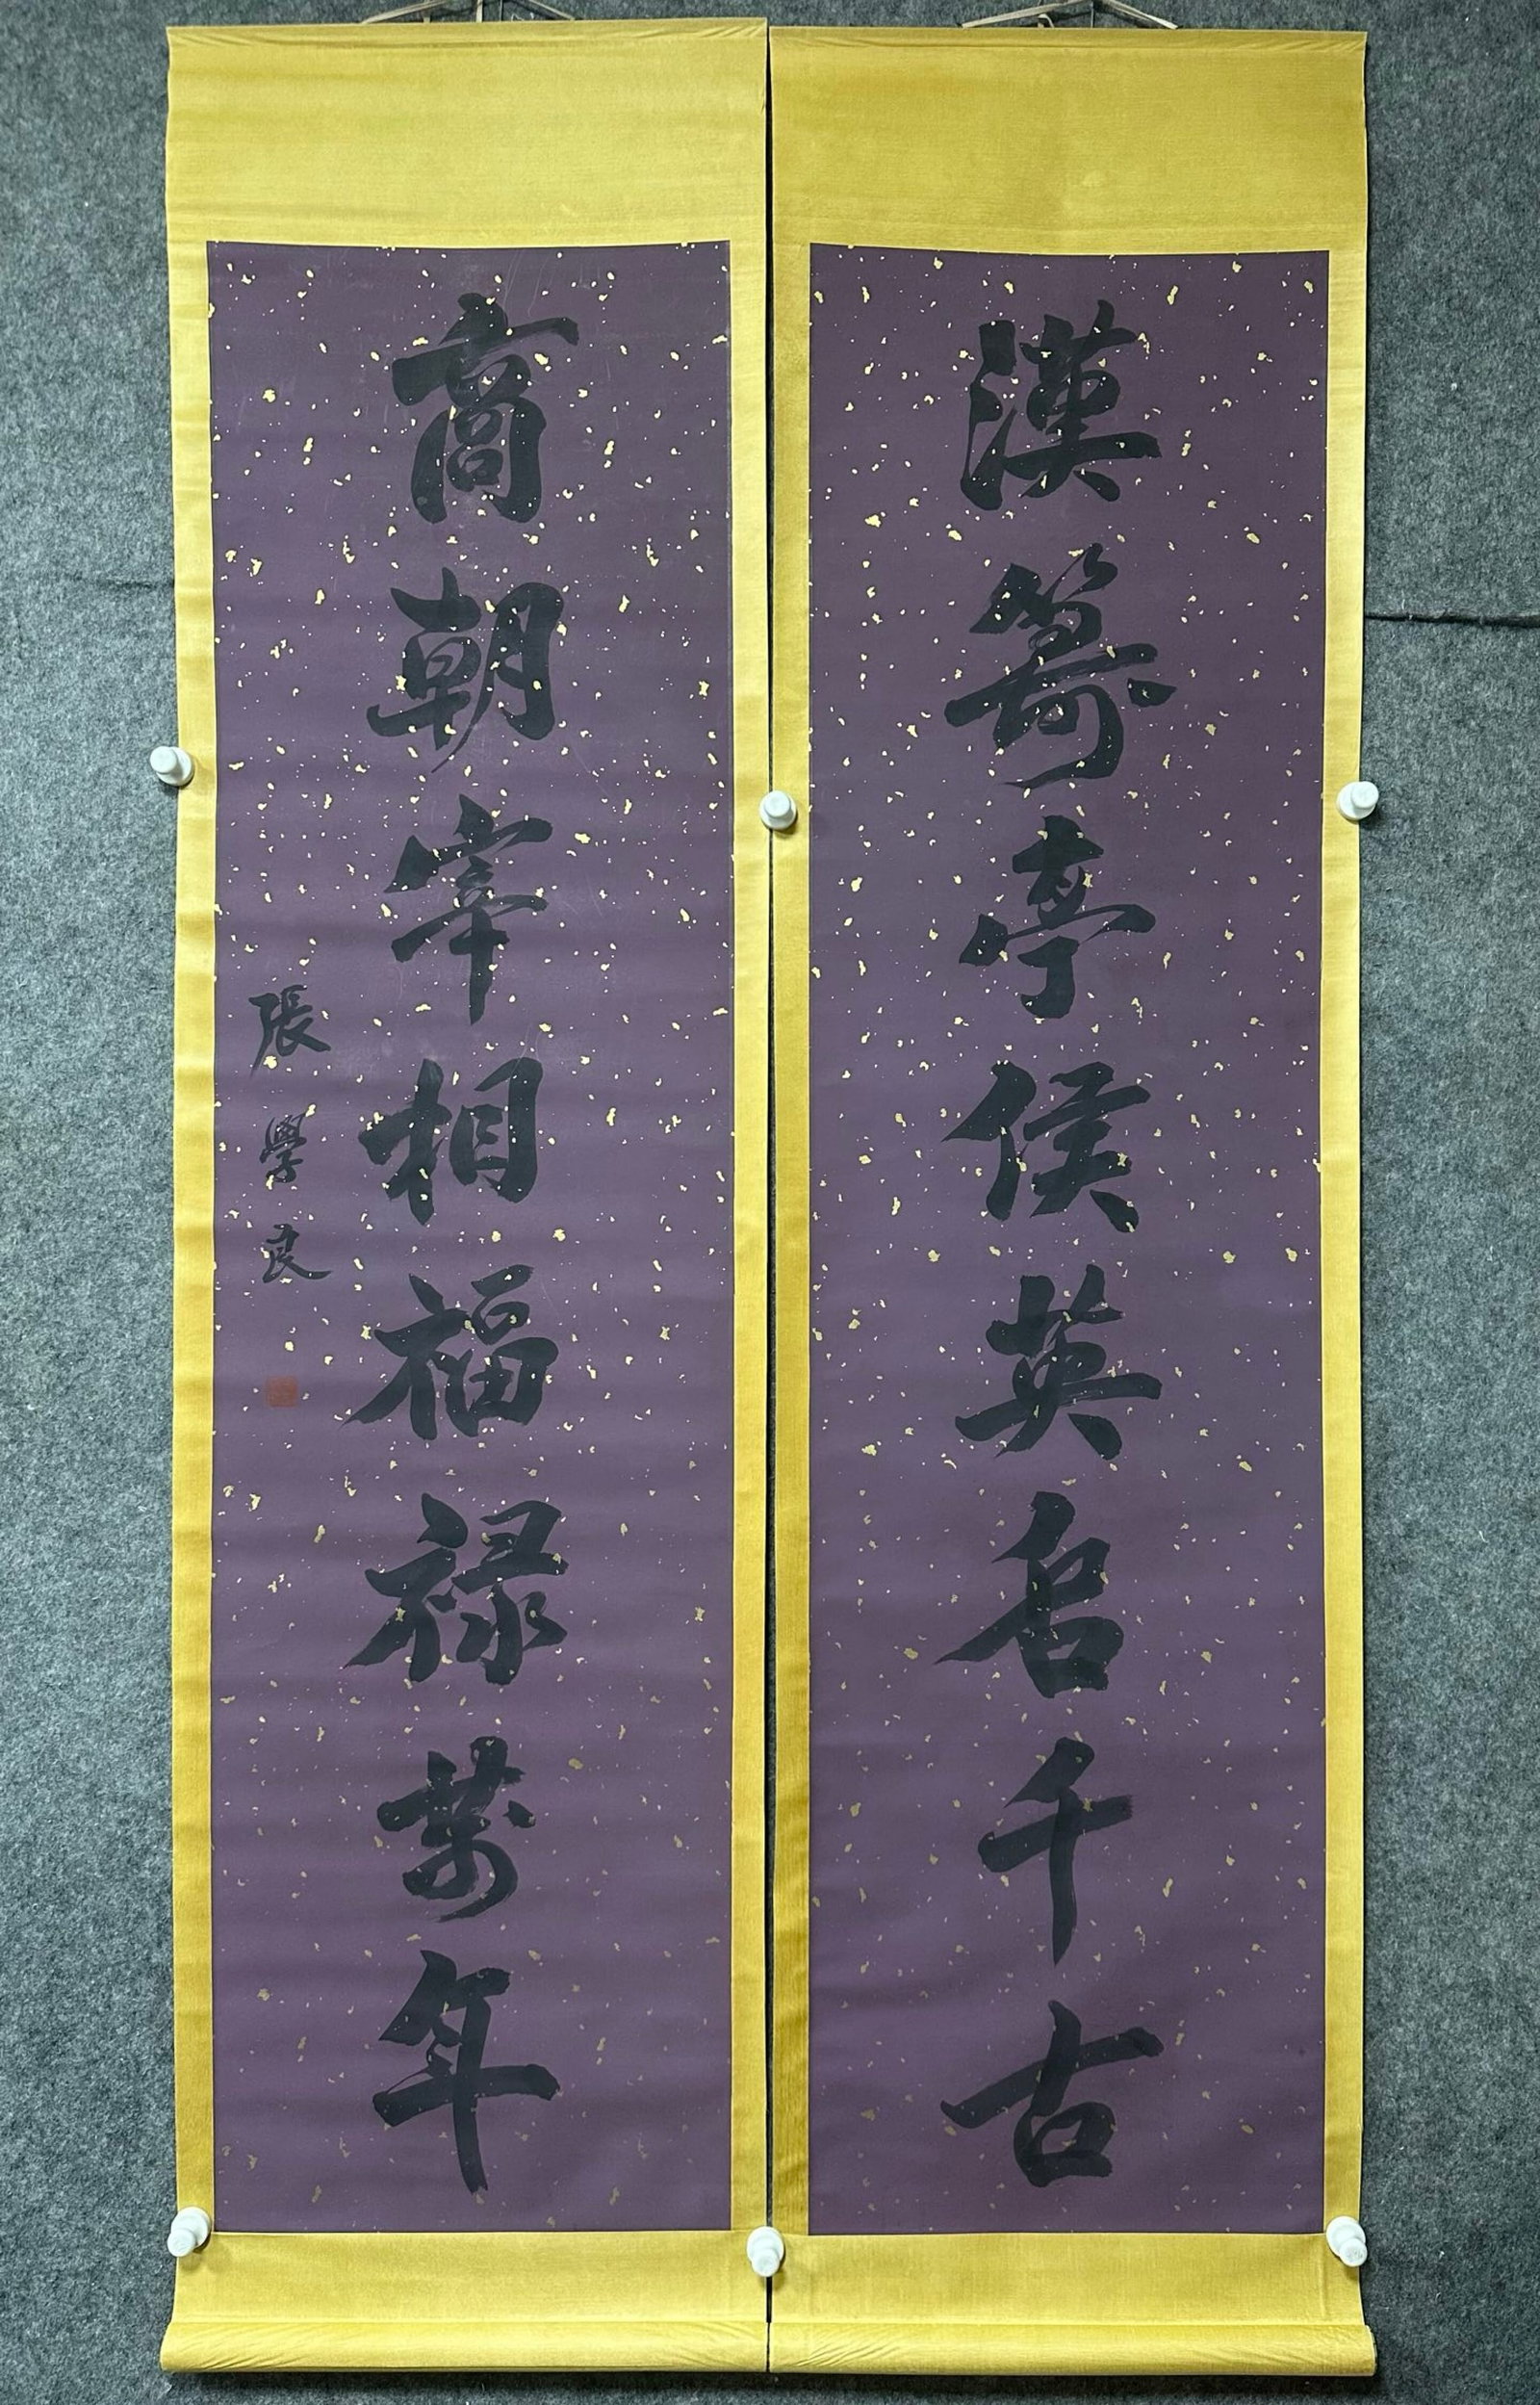 漢壽亭侯英名千古
商朝宰相福禄萬年
張學良